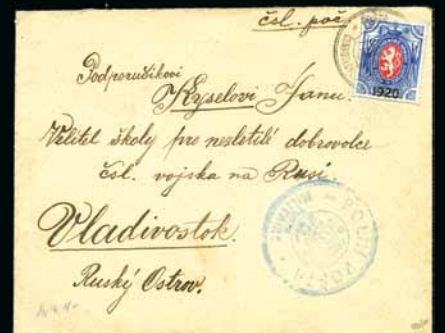 čsl. pošt.
1920
Podporučíkovi
Kyselovi Janu.
Velitel školy pro nezletilé dobrovolce
čsl. vojska na Rusi.
Vladivostok.
Ruský Ostrov.
POLNÍ POŠTA